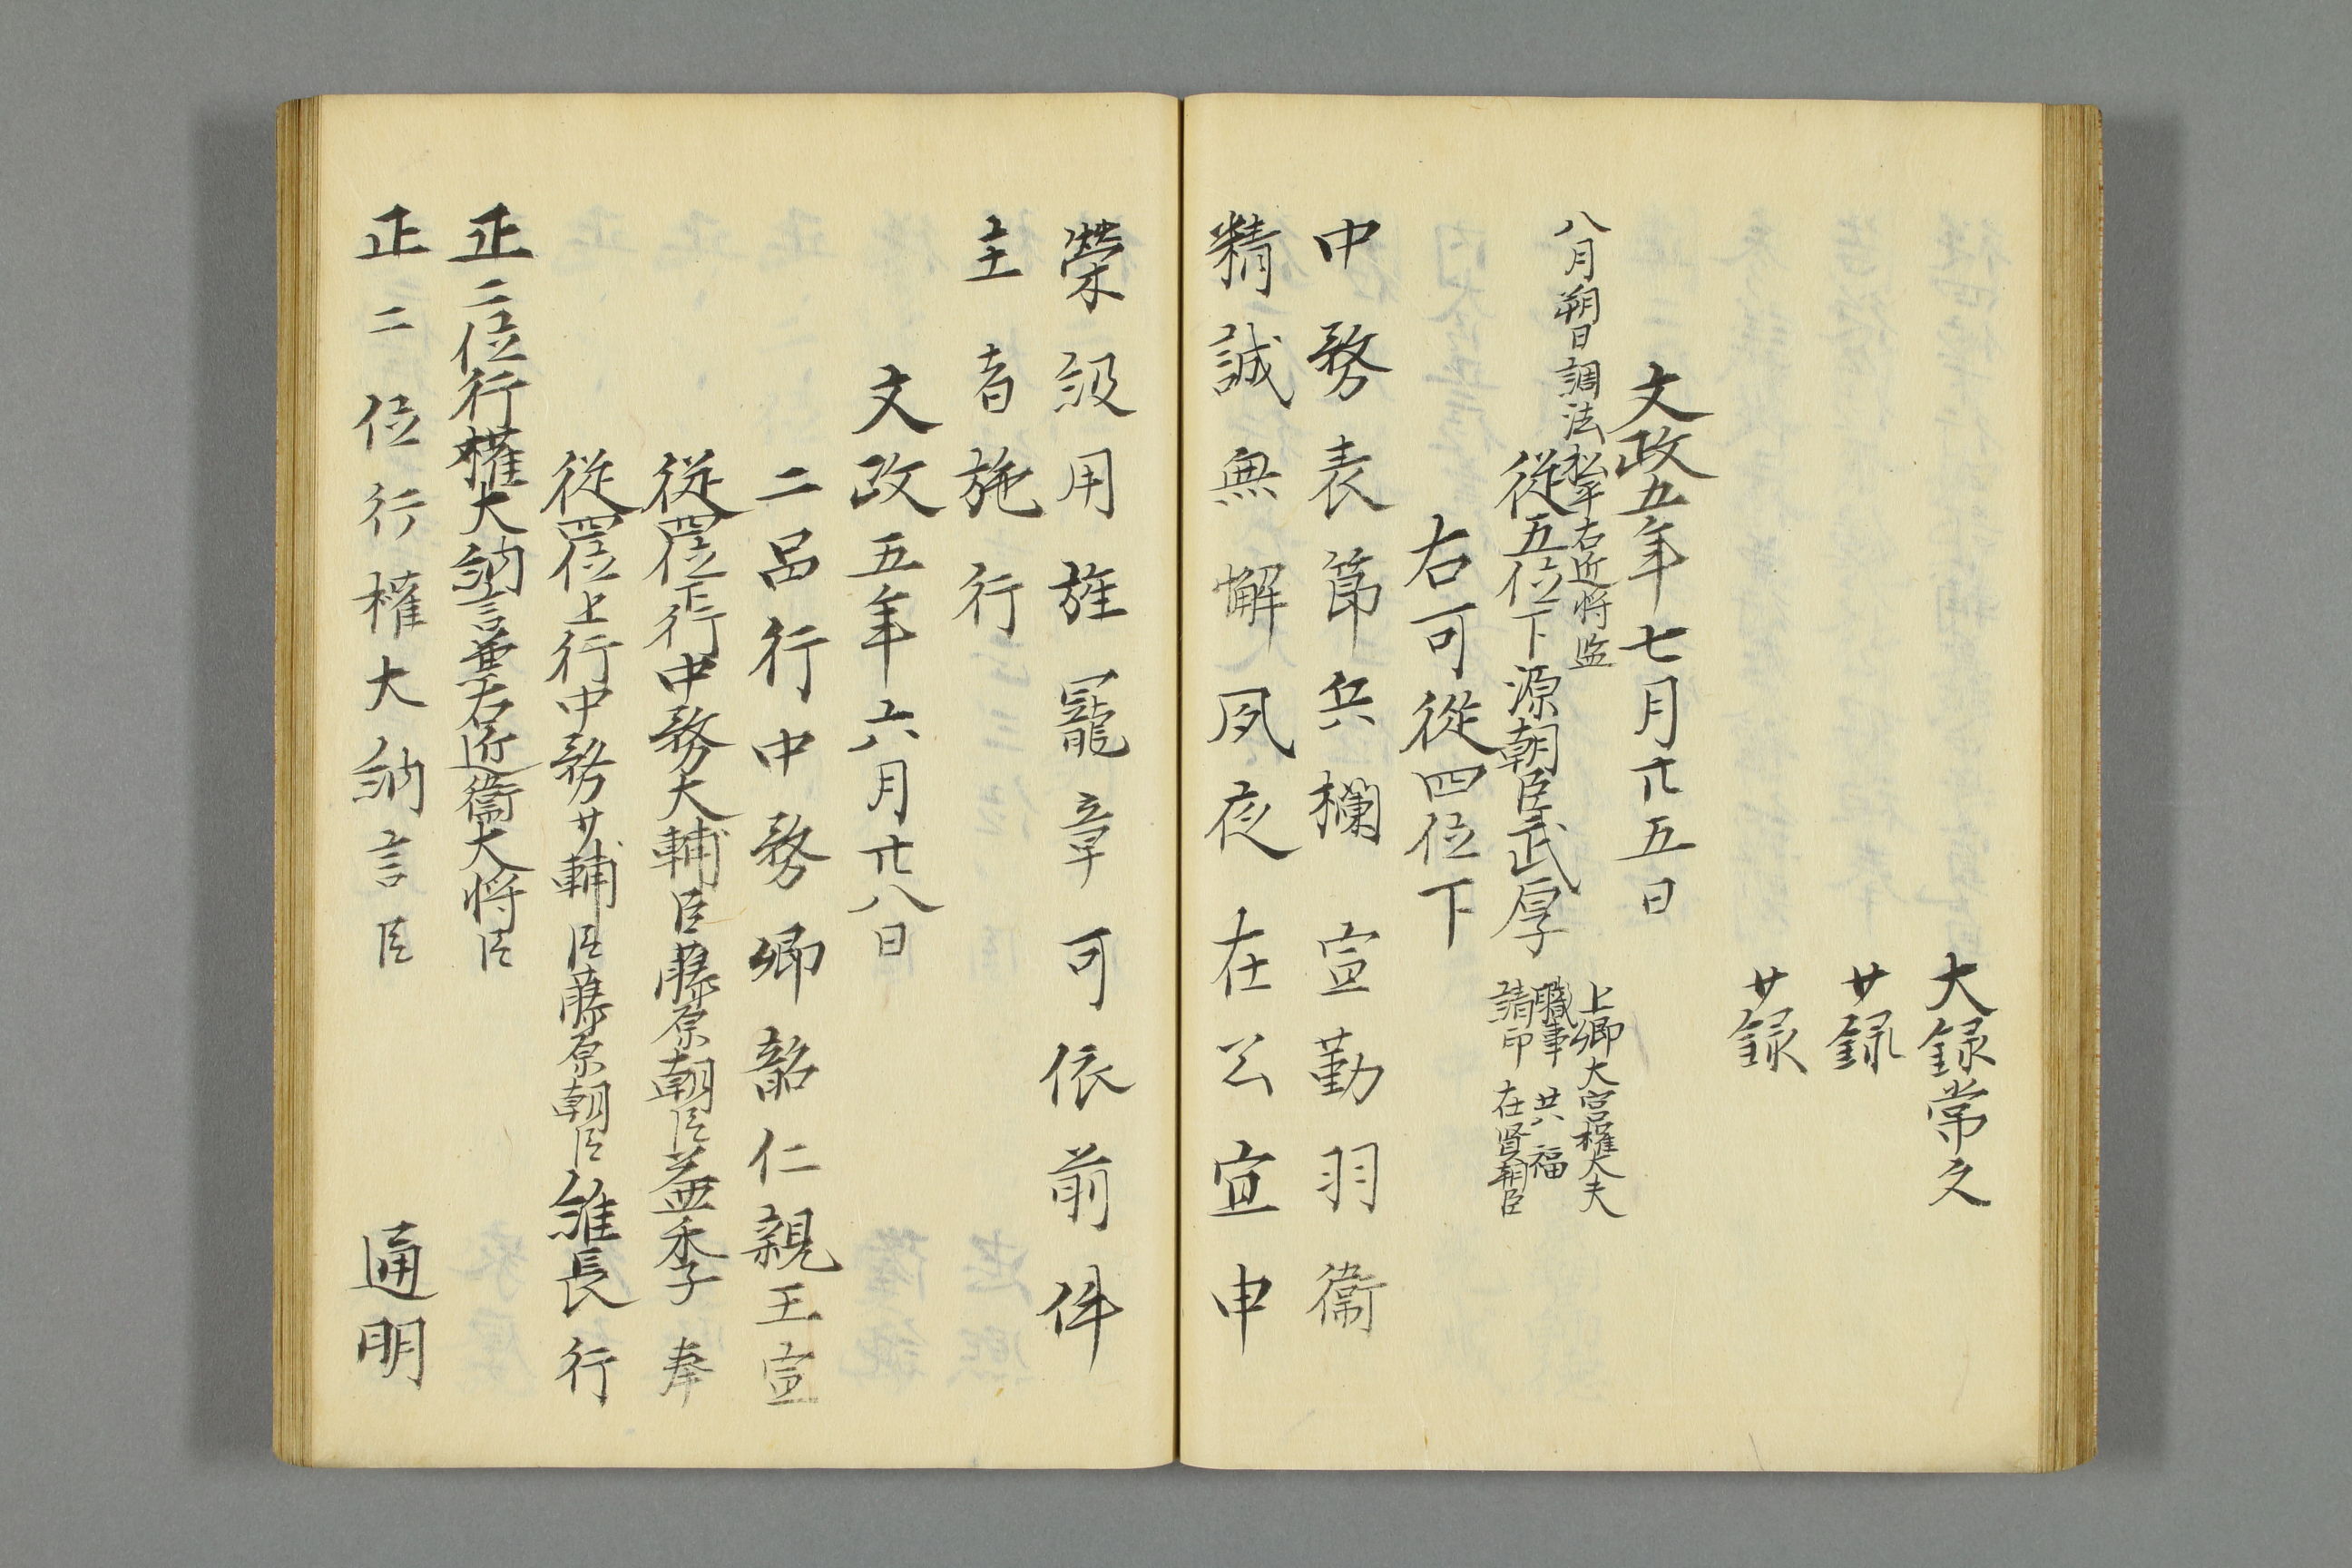 大録常久
廾録
廾録
文政五年七月廿五日
八月朔日調法
松平右近将監
従五位下源朝臣武厚
上卿大宮権大夫
職事 共福
請印 在賢朝臣
右可従四位下
中務表節兵欄宣勤羽衛
精誠無懈夙夜在公宜申
榮級用旌寵章可依前件
主者施行
文政五年六月廿八日
二品行中務卿韶仁親王宣
従四位下行中務大輔臣藤原朝臣益季奉
従四位上行中務廾輔臣藤原朝臣雄長行
正二位行權大納言兼右近衛大将臣
正二位行權大納言臣 通明